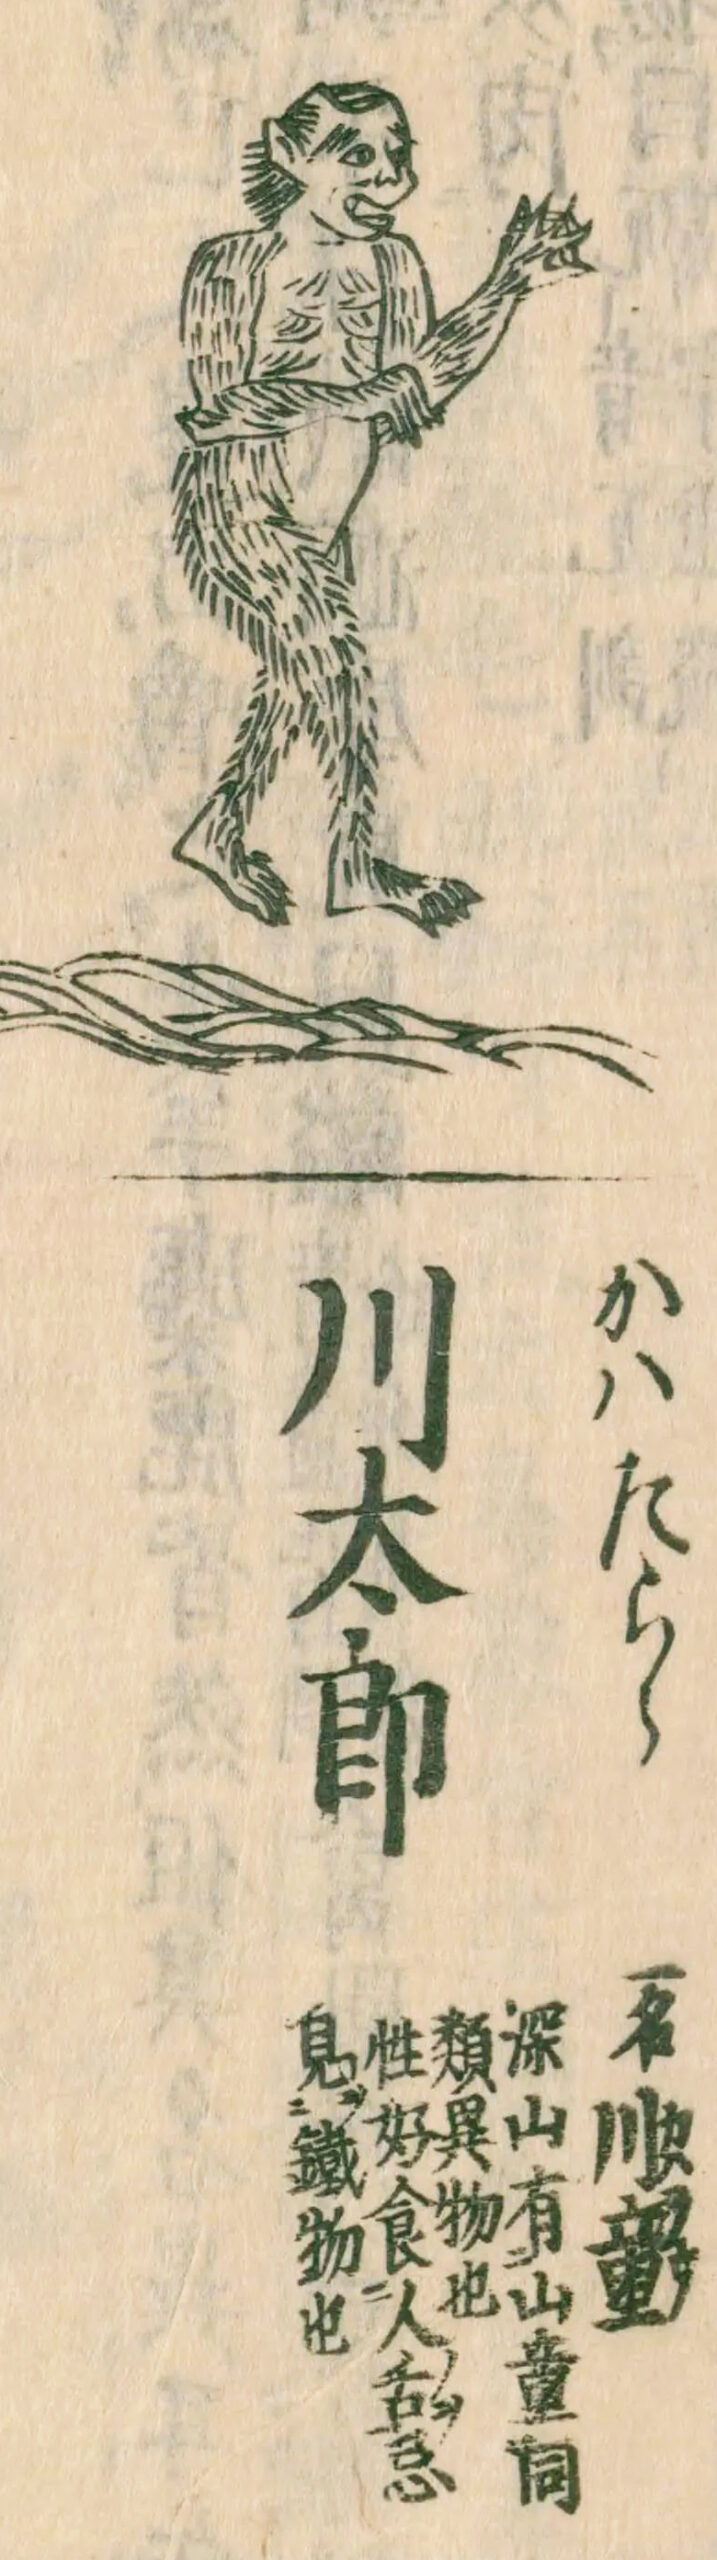 かハたらう
川太郎
一名川童
深山有山童同
類異物也
性好食人舌忌
見鐵物也